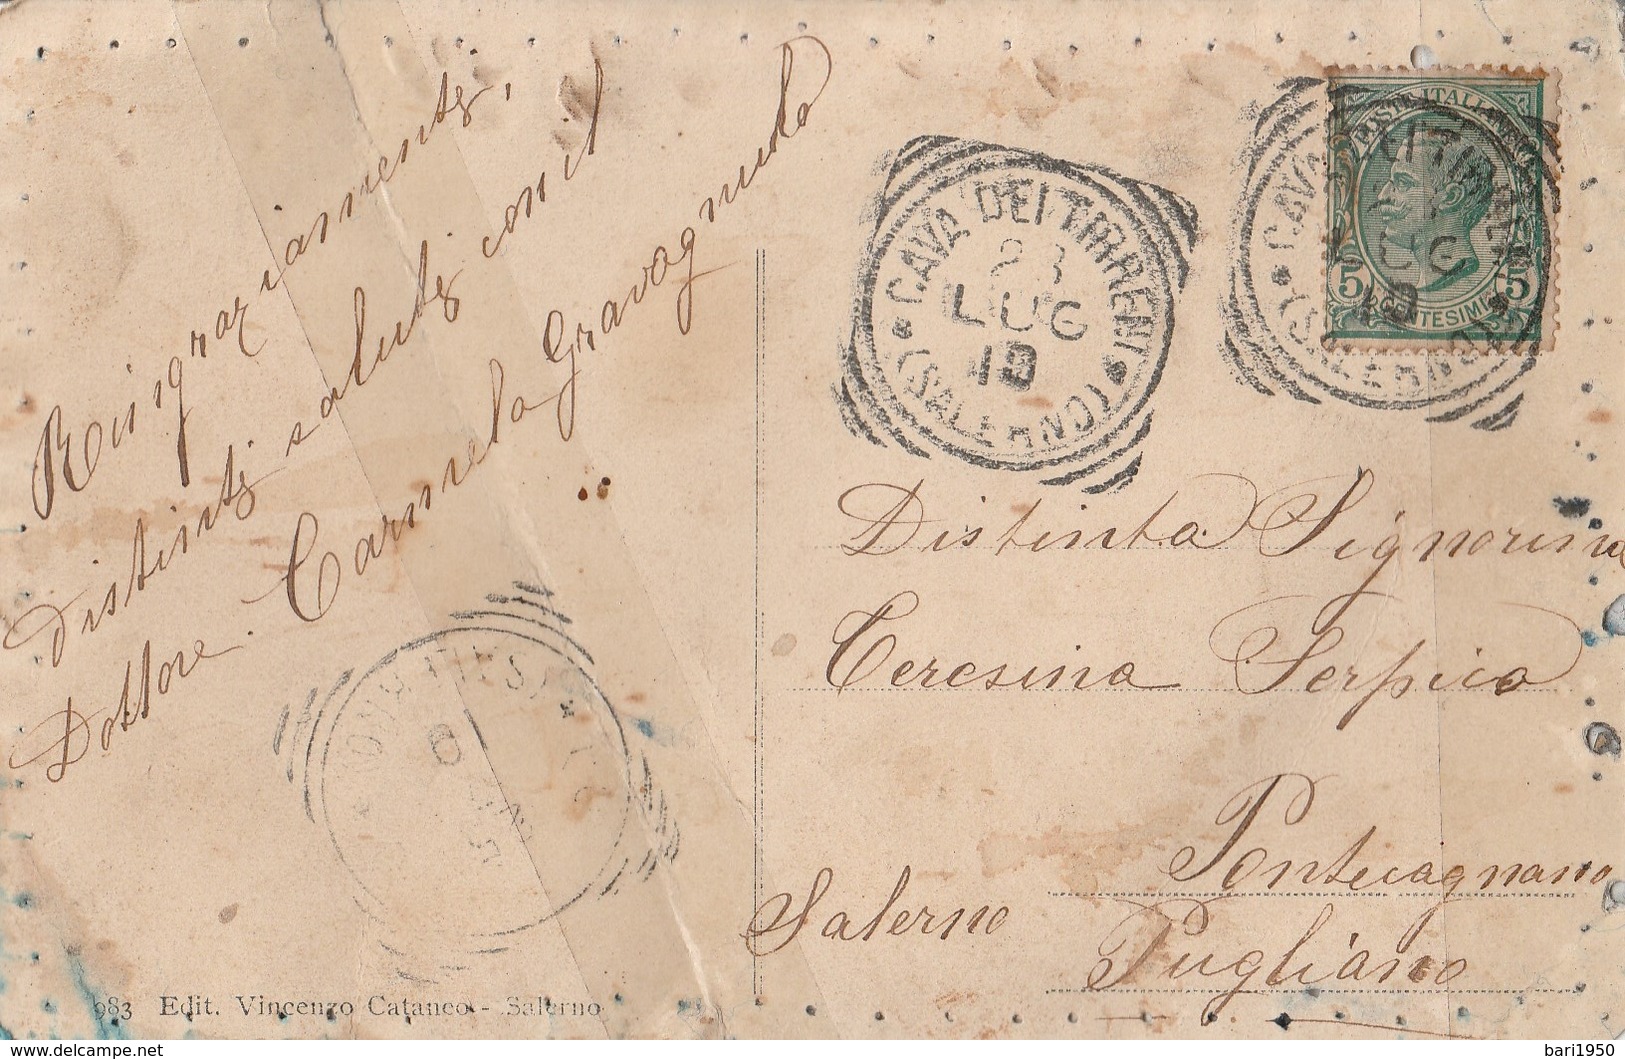 Ringraziamenti,
distinti saluti con il
Dottore Carmelo Gravagnuolo
CAVA DEI TIRRENI
(SALERNO)
23
LUG
10
POSTE ITALIANE
5 CENTESIMI 5
CAVA
LUG
10
(SALERNO)
Distinta Signorina
Teresina Serpico
Pontecagnano
Salerno Pugliano
983 Edit. Vincenzo Cataneo - Salerno
www.delcampe.net
bari1950